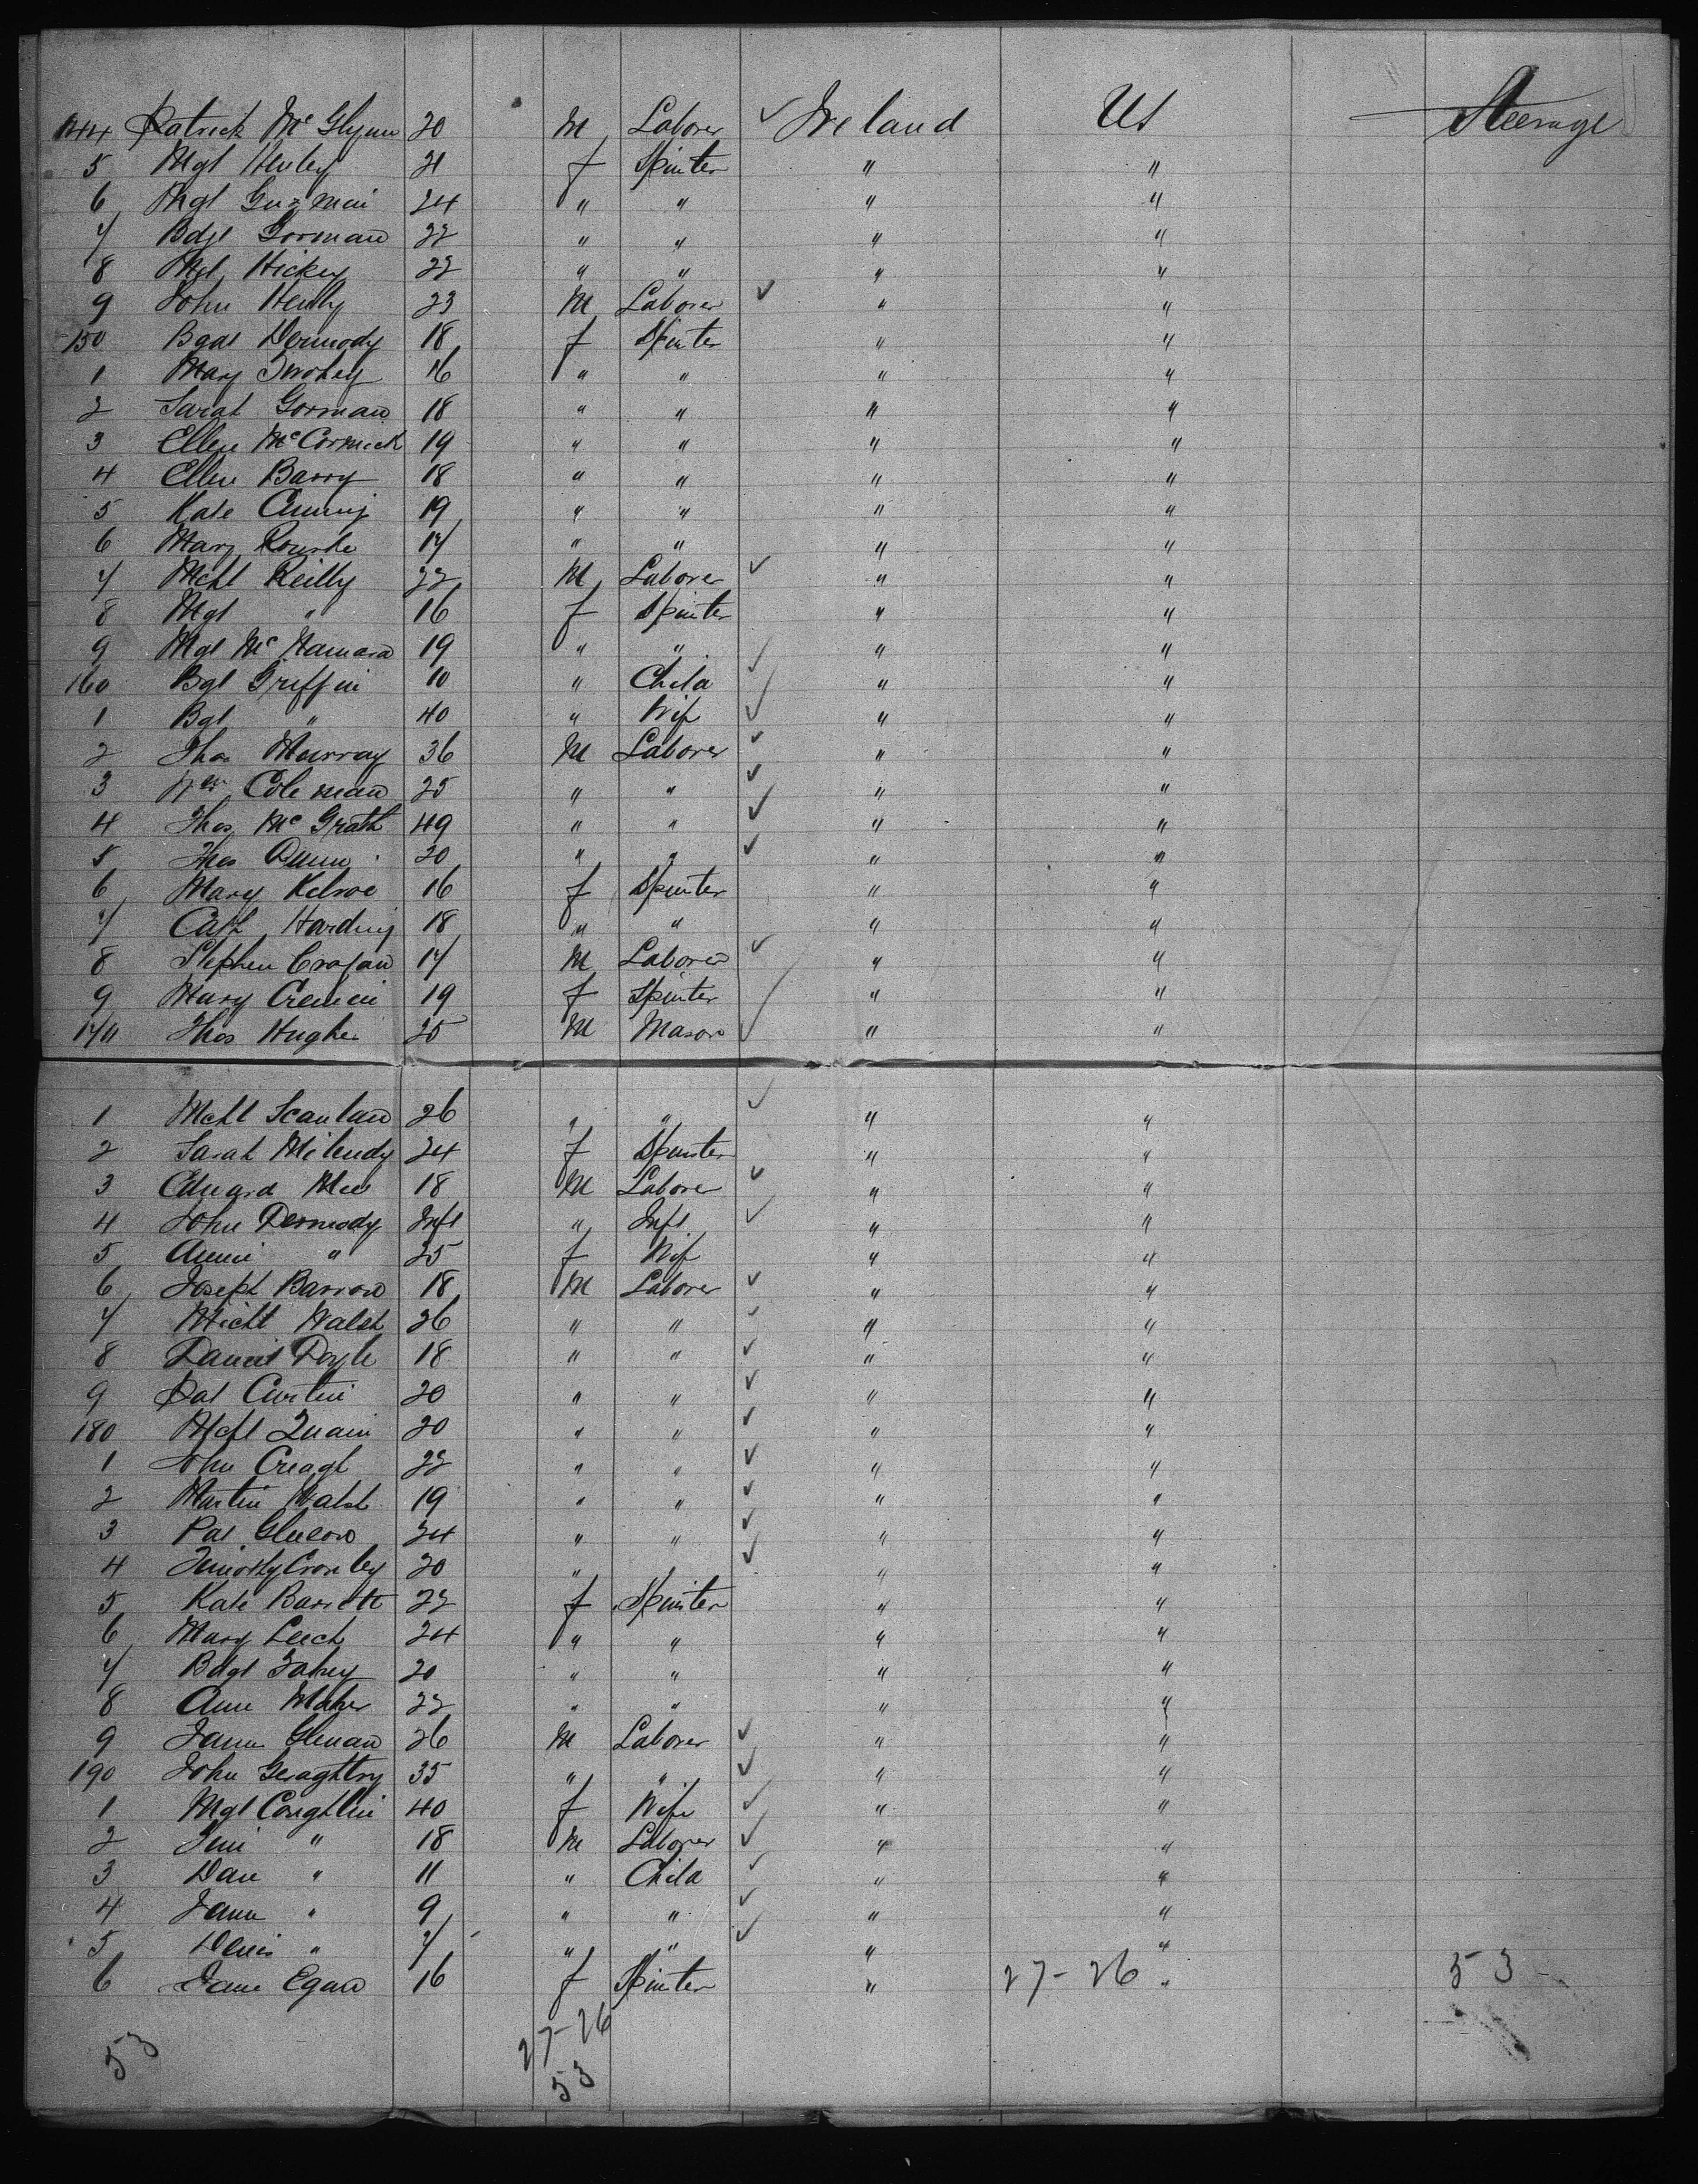 144 Patrick McGlynn 20 M Laborer ✓ Ireland US Steerage
5 Mgt Henley 21 f Spinster " "
6 Mgt 24 " " " "
7 Bdgt Gorman 22 " " " "
8 Mgt Hickey 22 " " " "
9 John Henly 23 M Laborer ✓ " "
150 Bgdt Dermody 18 f Spinster " "
1 Mary Twohey 16 " " " "
2 Sarah Gorman 18 " " " "
3 Ellen McCormick 19 " " " "
4 Ellen Barry 18 " " " "
5 Kate 19 " " " "
6 Mary Rourke 17 " " " "
7 Mchl Reilly 22 M Laborer ✓ " "
8 Mgt " 16 f Spinster " "
9 Mgt McNamara 19 " " ✓ " "
160 Bgt Griffin 10 " Child ✓ " "
1 Bgt " 40 " Wife ✓ " "
2 Thos Murray 36 M Laborer ✓ " "
3 Wm Coleman 25 " " ✓ " "
4 Thos McGrath 49 " " ✓ " "
5 Thos Dunn 20 " " ✓ " "
6 Mary 16 f Spinster " "
7 Cath Harding 18 " " " "
8 Stephen 17 M Laborer ✓ " "
9 Mary Cremin 19 f Spinster " "
170 Thos Hughes 25 M Mason ✓ " "
1 Mchl Scanlan 26 " " ✓ " "
2 Sarah 24 f Spinster " "
3 Edward 18 M Laborer ✓ " "
4 John Dermody Inft " Inft ✓ " "
5 Annie " 25 f Wife " "
6 Joseph Barron 18 M Laborer ✓ " "
7 Michl Walsh 26 " " ✓ " "
8 Daniel Doyle 18 " " ✓ " "
9 Pat Curtin 20 " " ✓ " "
180 Mchl Quain 20 " " ✓ " "
1 John Creagh 22 " " ✓ " "
2 Martin Walsh 19 " " ✓ " "
3 Pat Gleeson 24 " " ✓ " "
4 Timothy Cronley 20 " " ✓ " "
5 Kate Barrett 22 f Spinster " "
6 Mary Leech 24 " " " "
7 Bdgt Fahey 20 " " " "
8 Anne Maher 22 " " " "
9 James 26 M Laborer ✓ " "
190 John Geraghtry 35 " " ✓ " "
1 Mgt Coughlin 40 f Wife ✓ " "
2 Tim " 18 M Laborer ✓ " "
3 Dan " 11 " Child ✓ " "
4 James " 9 " " ✓ " "
5 Denis " 7 " " ✓ " "
6 Jane Egan 16 f Spinster " 27-26 " 53
53 27-26
53